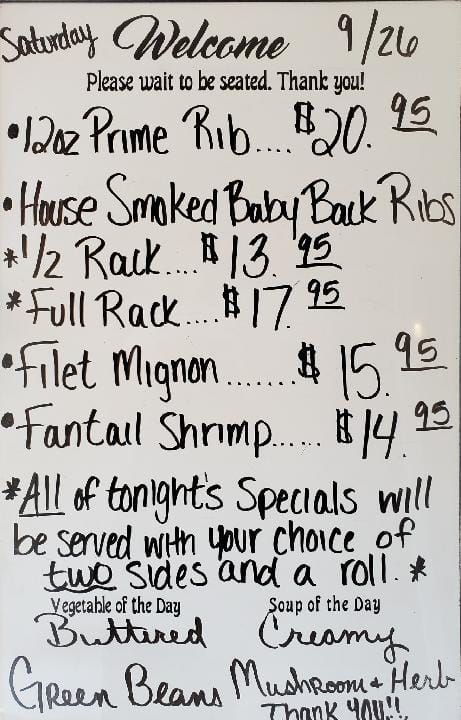 Saturday Welcome 9/26
Please wait to be seated. Thank you!
• 12oz Prime Rib.... $20.95
• House Smoked Baby Back Ribs
* 1/2 Rack.... $13.95
* Full Rack.... $17.95
• Filet Mignon....... $15.95
• Fantail Shrimp...... $14.95
*All of tonight's Specials will
be served with your choice of
two sides and a roll. *
Vegetable of the Day Soup of the Day
Buttered Creamy
Green Beans Mushroom & Herb
Thank you!!